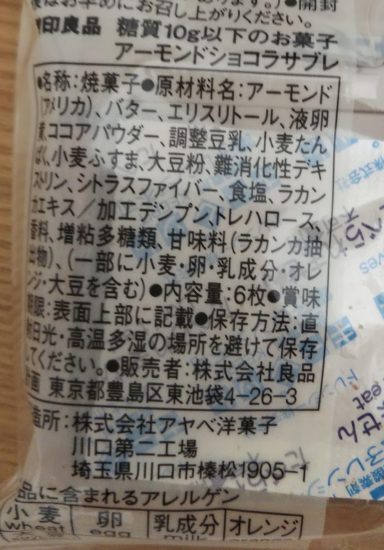 お早めにお召し上がりください。●開封
印良品 糖質10g以下のお菓子
アーモンドショコラサブレ
●名称:焼菓子●原材料名:アーモンド
(アメリカ)、バター、エリスリトール、液卵
黄、ココアパウダー、調整豆乳、小麦たん
ぱく、小麦ふすま、大豆粉、難消化性デキ
ストリン、シトラスファイバー、食塩、ラカン
カエキス/加工デンプン、トレハロース、
香料、増粘多糖類、甘味料(ラカンカ抽
出物)、(一部に小麦・卵・乳成分・オレ
ンジ・大豆を含む)●内容量:6枚●賞味
期限:表面上部に記載●保存方法:直
射日光・高温多湿の場所を避けて保存
してください。●販売者:株式会社良品
計画 東京都豊島区東池袋4-26-3
造所:株式会社アヤベ洋菓子
川口第二工場
埼玉県川口市榛松1905-1
品に含まれるアレルゲン
小麦 卵 乳成分 オレンジ
wheat egg milk